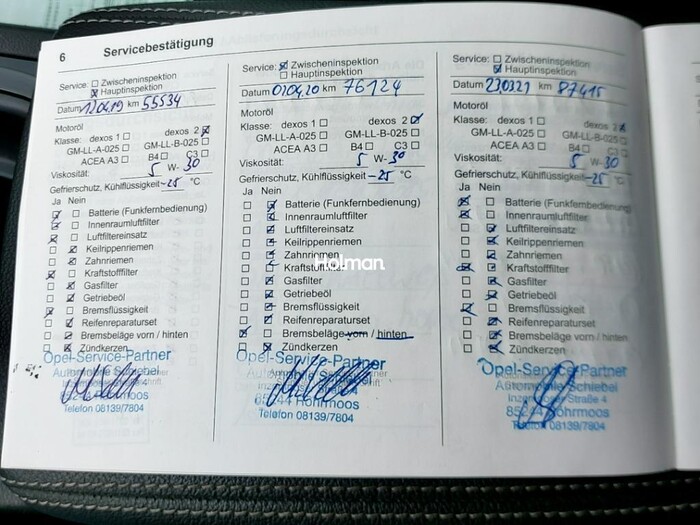 6 Servicebestätigung
Service: Zwischeninspektion
Hauptinspektion
Datum 12.04.19 km 55534
Motoröl
Klasse: dexos 1 dexos 2
GM-LL-A-025 GM-LL-B-025
ACEA A3 B4 C3
Viskosität: 5 W- 30
Gefrierschutz, Kühlflüssigkeit -25 °C
Ja Nein
Batterie (Funkfernbedienung)
Innenraumluftfilter
Luftfiltereinsatz
Keilrippenriemen
Zahnriemen
Kraftstofffilter
Gasfilter
Getriebeöl
Bremsflüssigkeit
Reifenreparaturset
Bremsbeläge vorn / hinten
Zündkerzen
Opel-Service-Partner
Automobile Schiebel
Telefon 08139/7804
Service: Zwischeninspektion
Hauptinspektion
Datum 01.04.20 km 76124
Motoröl
Klasse: dexos 1 dexos 2
GM-LL-A-025 GM-LL-B-025
ACEA A3 B4 C3
Viskosität: 5 W- 30
Gefrierschutz, Kühlflüssigkeit -25 °C
Ja Nein
Batterie (Funkfernbedienung)
Innenraumluftfilter
Luftfiltereinsatz
Keilrippenriemen
Zahnriemen
Kraftstofffilter
Gasfilter
Getriebeöl
Bremsflüssigkeit
Reifenreparaturset
Bremsbeläge vorn / hinten
Zündkerzen
Opel-Service-Partner
85244 Röhrmoos
Telefon 08139/7804
Service: Zwischeninspektion
Hauptinspektion
Datum 23.03.21 km 87415
Motoröl
Klasse: dexos 1 dexos 2
GM-LL-A-025 GM-LL-B-025
ACEA A3 B4 C3
Viskosität: 5 W- 30
Gefrierschutz, Kühlflüssigkeit -25 °C
Ja Nein
Batterie (Funkfernbedienung)
Innenraumluftfilter
Luftfiltereinsatz
Keilrippenriemen
Zahnriemen
Kraftstofffilter
Gasfilter
Getriebeöl
Bremsflüssigkeit
Reifenreparaturset
Bremsbeläge vorn / hinten
Zündkerzen
Opel-Service-Partner
Automobile Schiebel
85244 Röhrmoos
Telefon 08139/7804
Holman